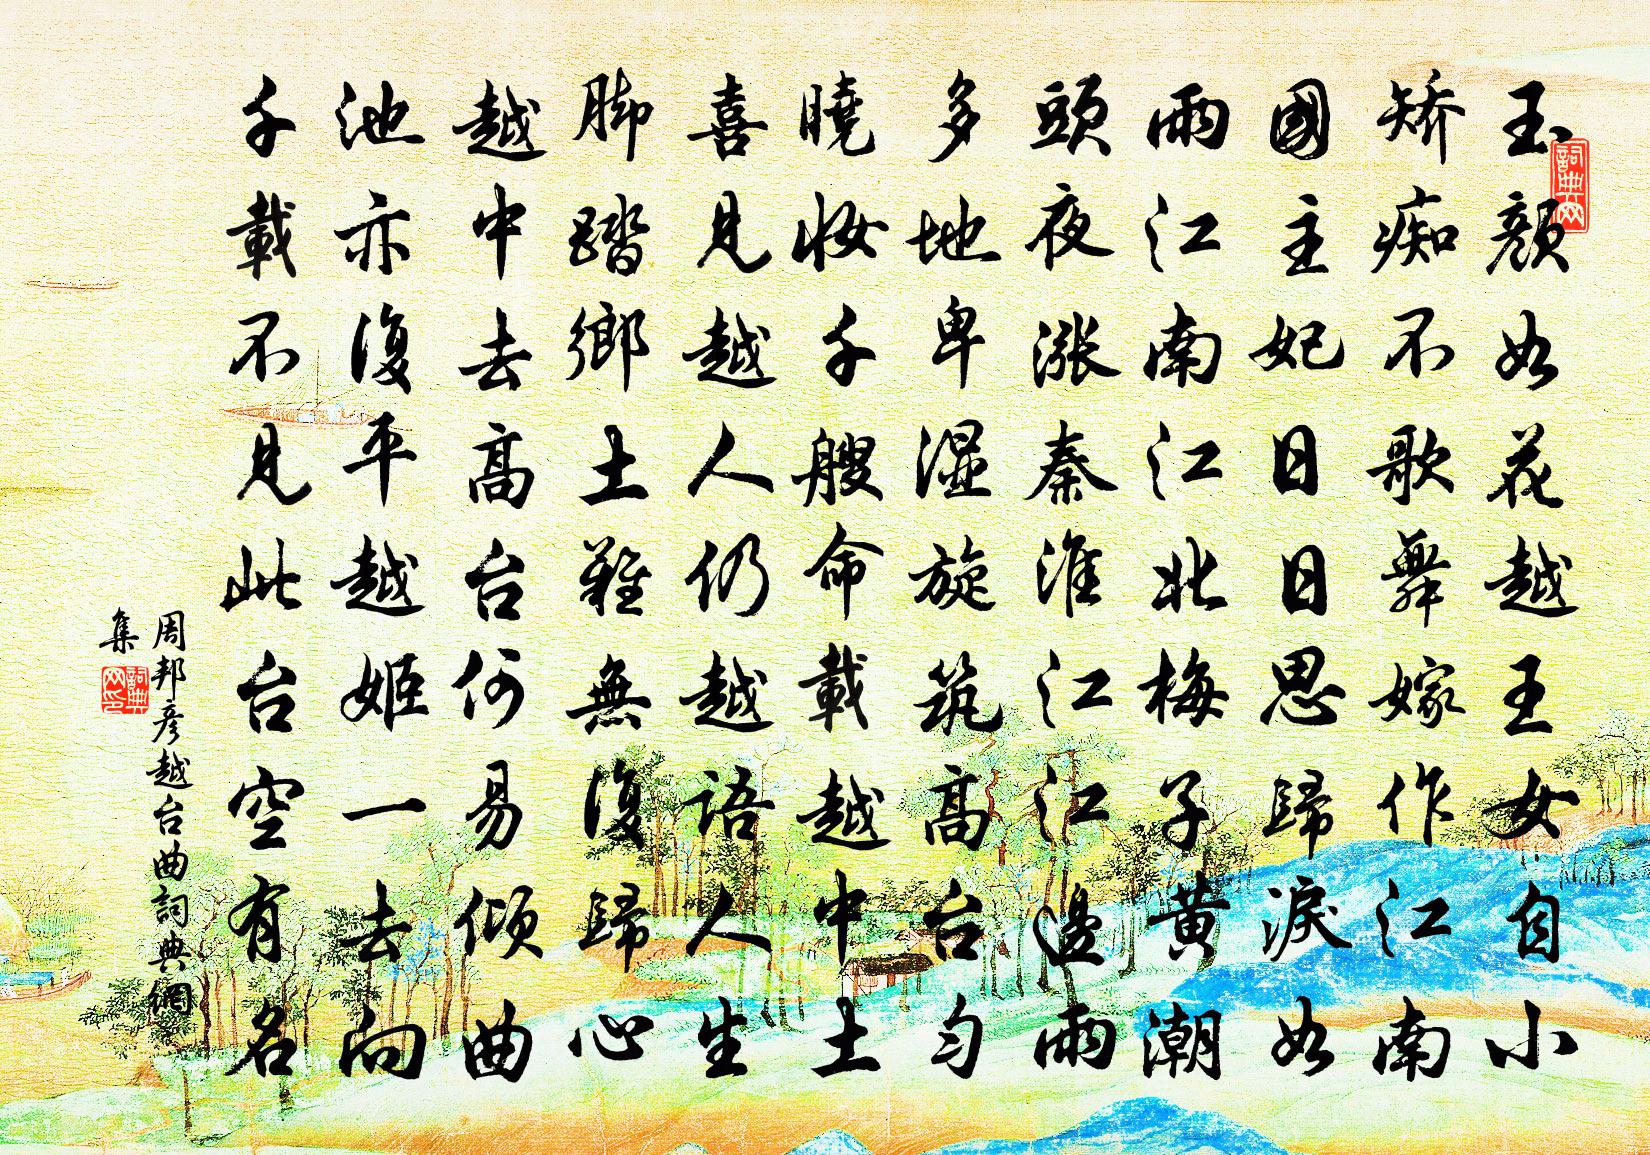 玉顔如花越王女自小
矫痴不歌舞嫁作江南
國主妃日日思歸淚如
雨江南江北梅子黄潮
頭夜漲秦淮江江邊雨
多地卑湿旋筑高台勻
曉妝千艘命載越中土
喜見越人仍越語人生
脚踏鄉土難無復歸心
越中去高台何易傾曲
池亦復平越姬一去向
千載不見此台空有名
周邦彦越台曲詞典網
集
詞典网
詞典网印